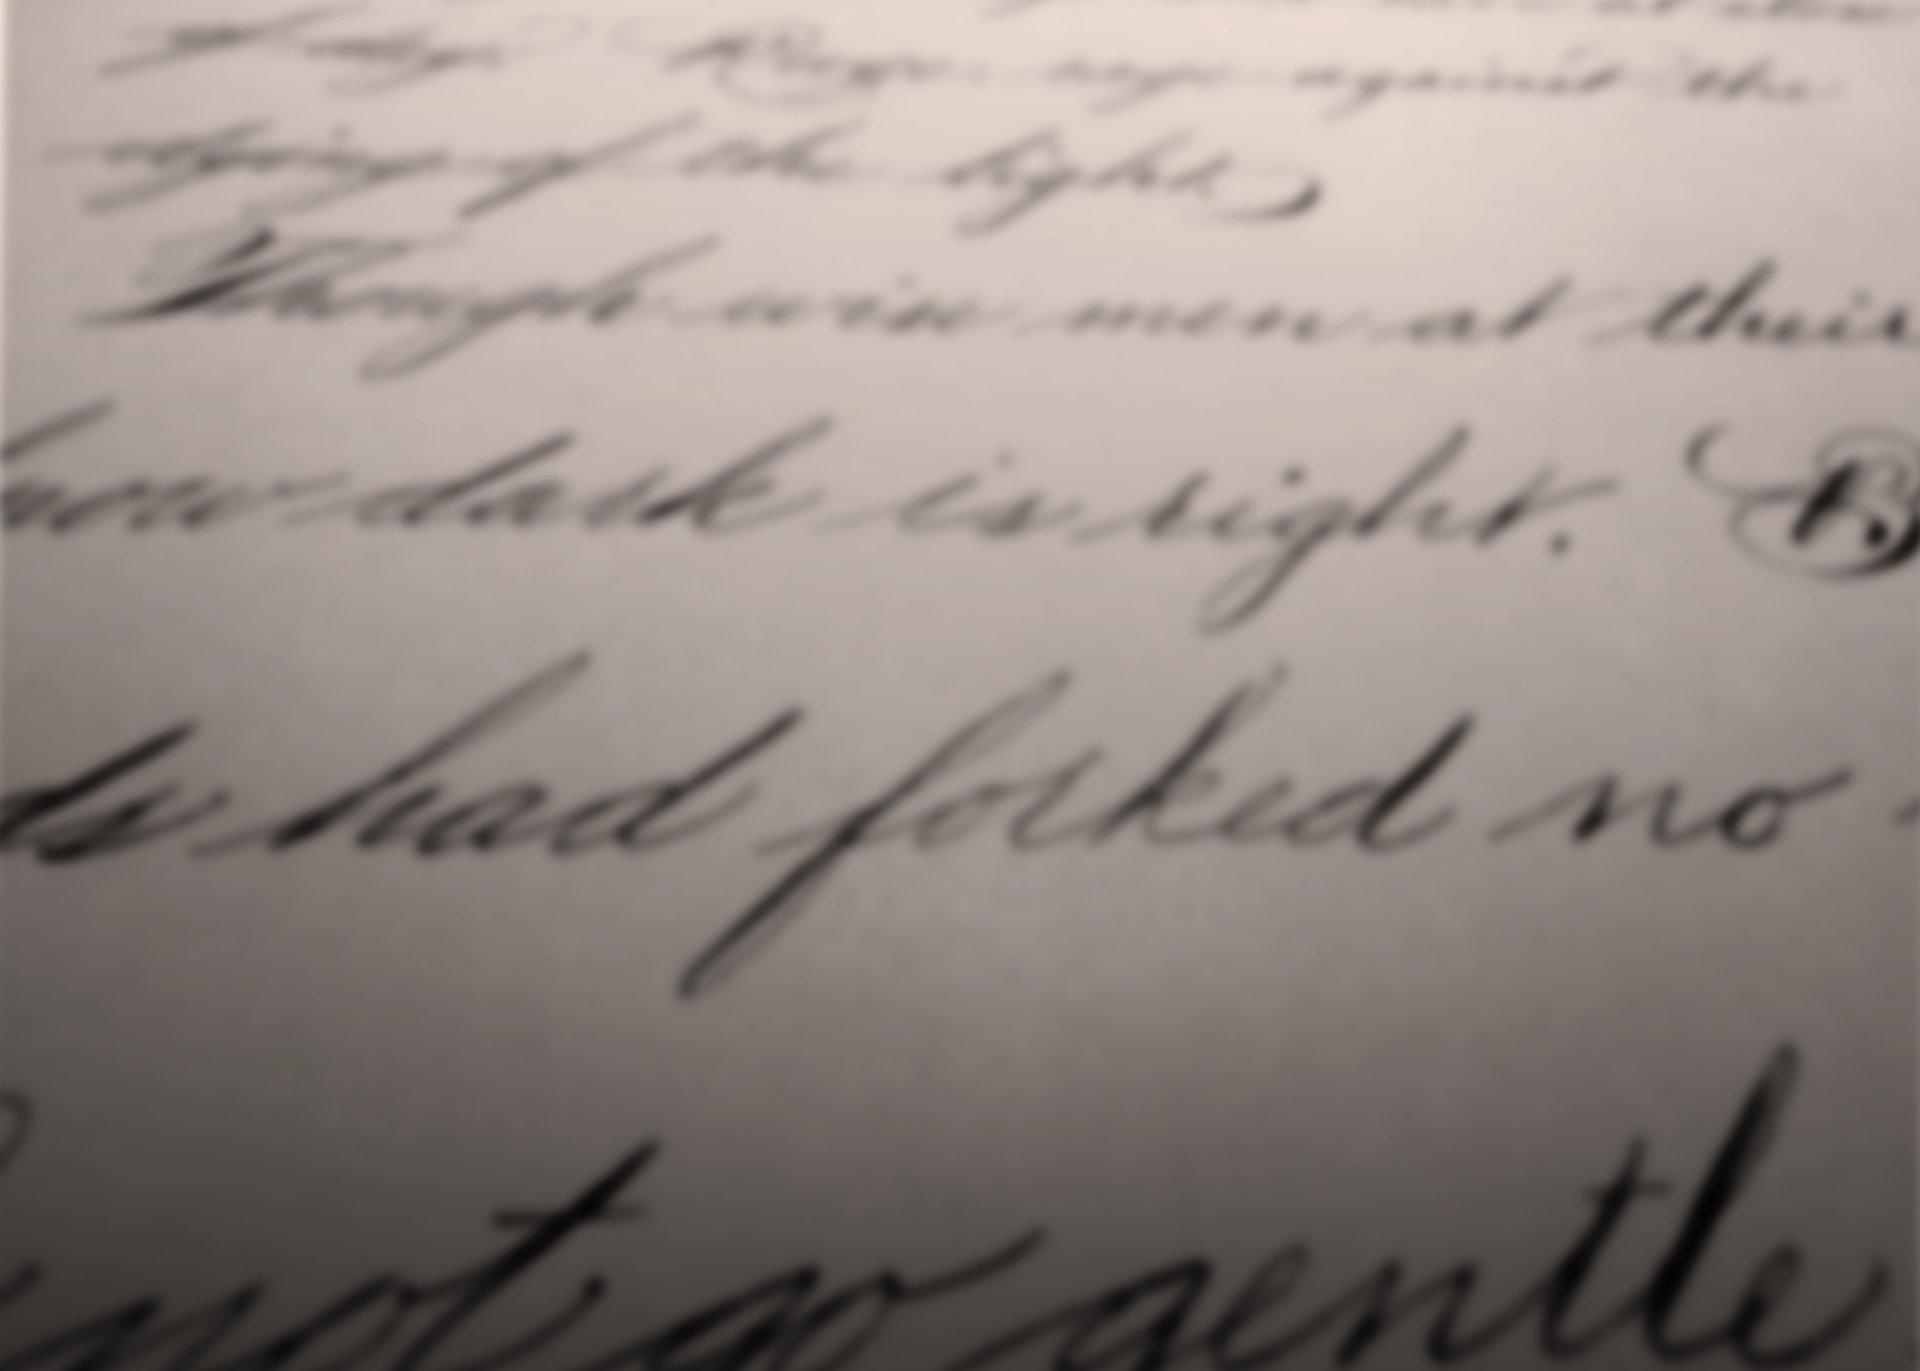 of day; Rage, rage against the
dying of the light.
Though wise men at their
know dark is right. B
ds had forked no
not go gentle